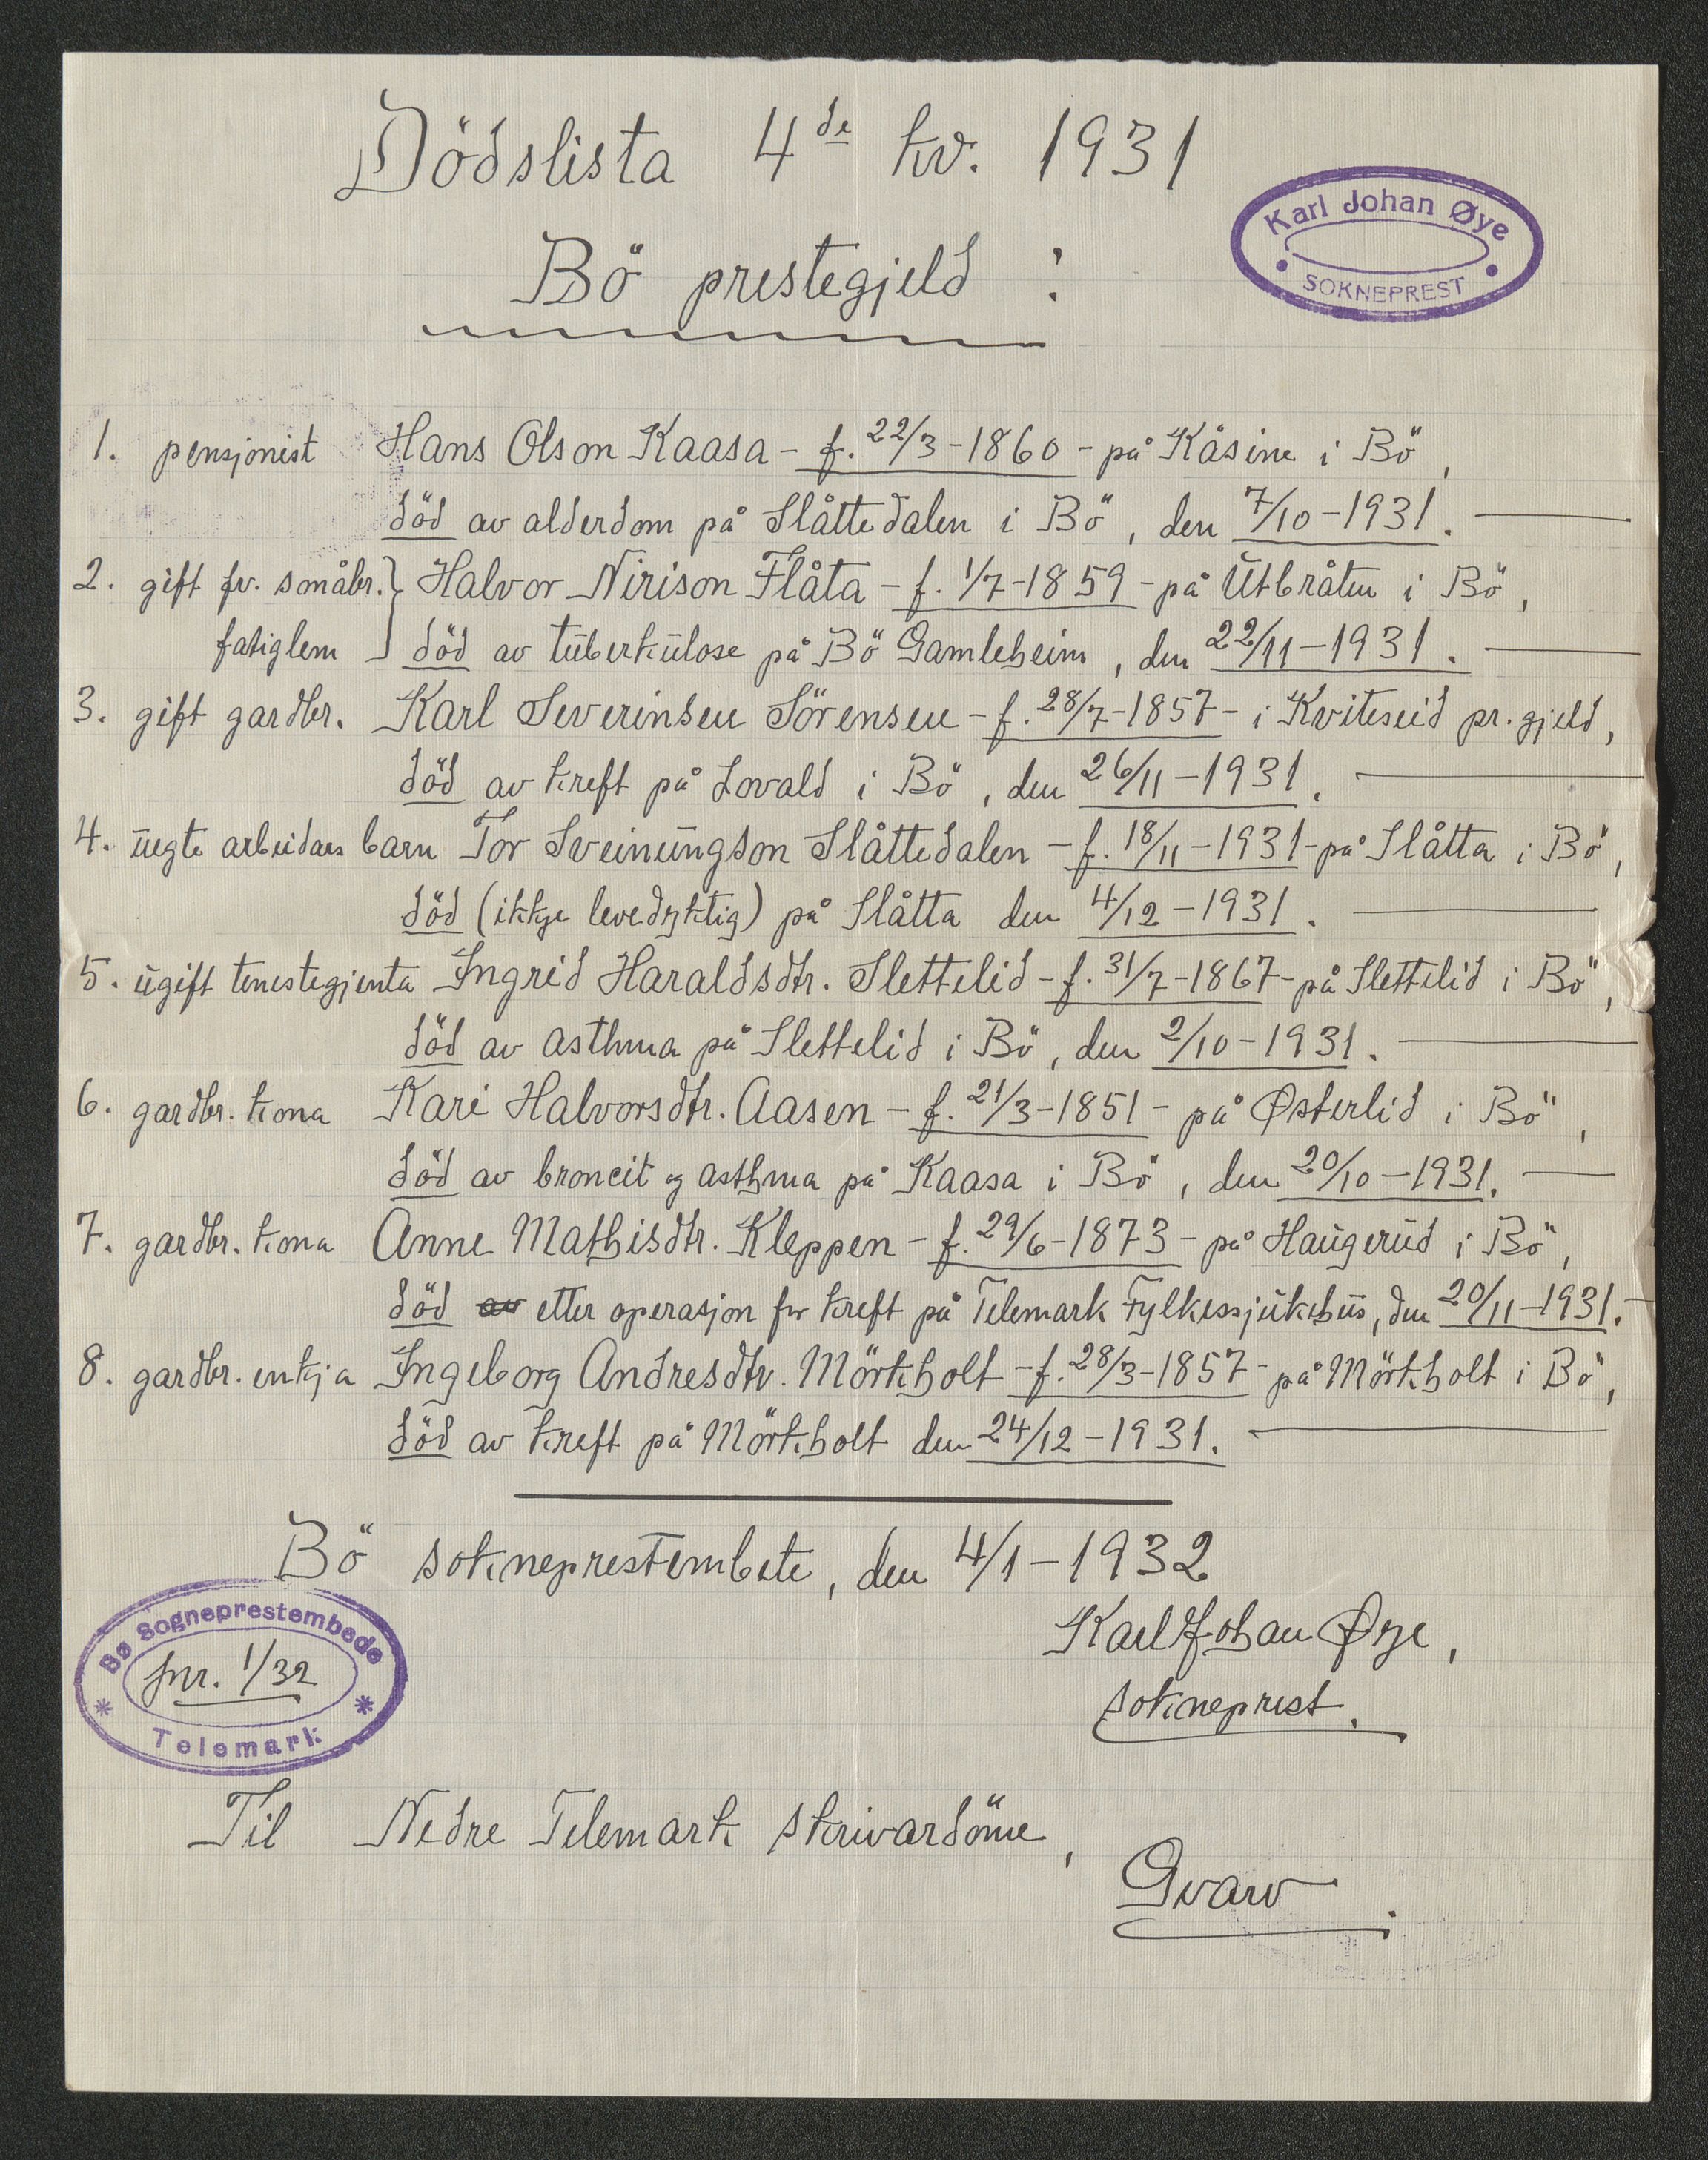 Dödslista 4de kv. 1931
Karl Johan Øye
SOKNEPREST
Bö prestegjeld :
1. pensjonist Hans Olson Kaasa - f. 22/3 - 1860 - på Kåsine i Bö,
död av alderdom på Slåttedalen i Bö, den 7/10 - 1931.
2. gift fv. småbr. } Halvor Nirison Flåta - f. 1/7 - 1859 - på Utbråten i Bö,
fatiglem död av tuberkulose på Bö Gamleheim, den 22/11 - 1931.
3. gift gardbr. Karl Severinsen Sörensen - f. 28/7 - 1857 - i Kviteseid pr.gjeld,
död av kreft på Lovald i Bö, den 26/11 - 1931.
4. uegte arbeidars barn Tor Sveinungson Slåttedalen - f. 18/11 - 1931 - på Slåtta i Bö,
död (ikkje levedyktig) på Slåtta den 4/12 - 1931.
5. ugift tenestegjenta Ingrid Haraldsdtr. Slettelid - f. 31/7 - 1867 - på Slettelid i Bö,
död av asthma på Slettelid i Bö, den 2/10 - 1931.
6. gardbr. kona Kari Halvorsdtr. Aasen - f. 21/3 - 1851 - på Østerlid i Bö,
död av broncit og asthma på Kaasa i Bö, den 20/10 - 1931.
7. gardbr. kona Anne Mathisdtr. Kleppen - f. 29/6 - 1873 - på Haugerud i Bö,
död av etter operasjon for kreft på Telemark Fylkessjukehus, den 20/11 - 1931.
8. gardbr. enkja Ingeborg Andresdtr. Mörkholt - f. 28/3 - 1857 - på Mörkholt i Bö,
död av kreft på Mörkholt den 24/12 - 1931.
Bö sokneprestembete, den 4/1 - 1932
Karl Johan Øye,
sokneprest.
Bø Sogneprestembede
Jnr. 1/32
Telemark
Til Nedre Telemark skrivardöme,
Gvarv.